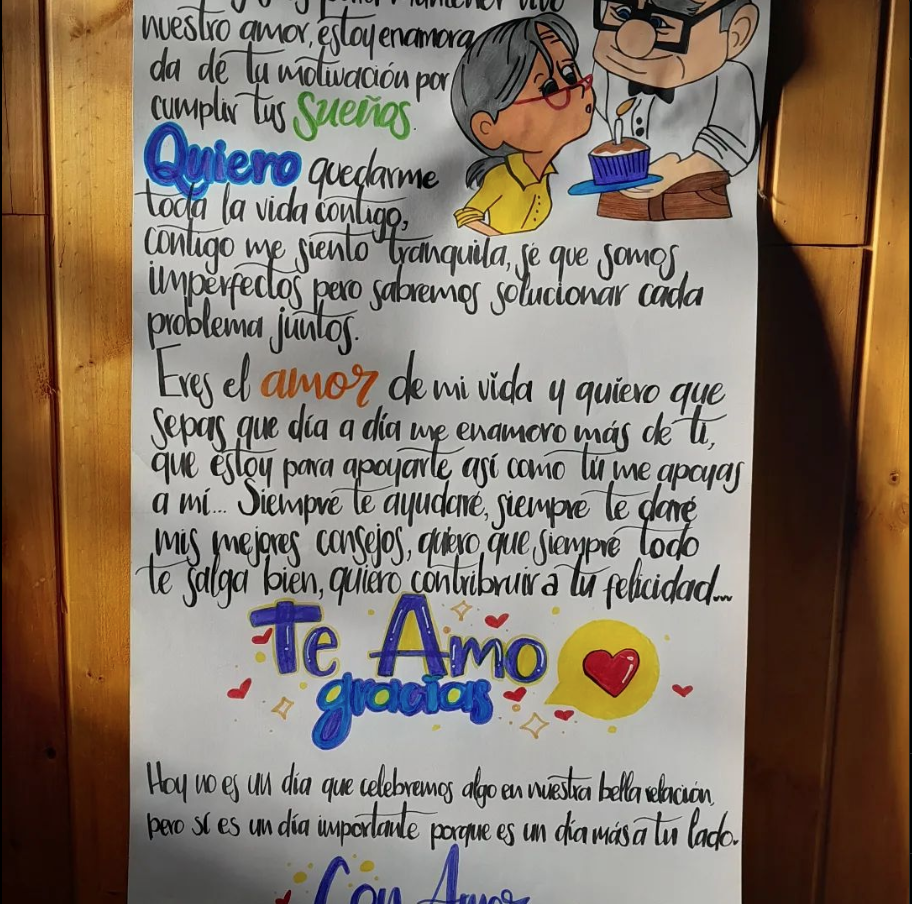 para mantener vivo
nuestro amor, estoy enamora
da de tu motivación por
cumplir tus Sueños.
Quiero quedarme
toda la vida contigo,
contigo me siento tranquila, sé que somos
imperfectos pero sabremos solucionar cada
problema juntos.
Eres el amor de mi vida y quiero que
sepas que día a día me enamoro más de ti,
que estoy para apoyarte así como tú me apoyas
a mí... Siempre te ayudaré, siempre te daré
mis mejores consejos, quiero que siempre todo
te salga bien, quiero contribruir a tu felicidad...
Te Amo
gracias
Hoy no es un día que celebremos algo en nuestra bella relación,
pero sí es un día importante porque es un día más a tu lado.
Con Amor